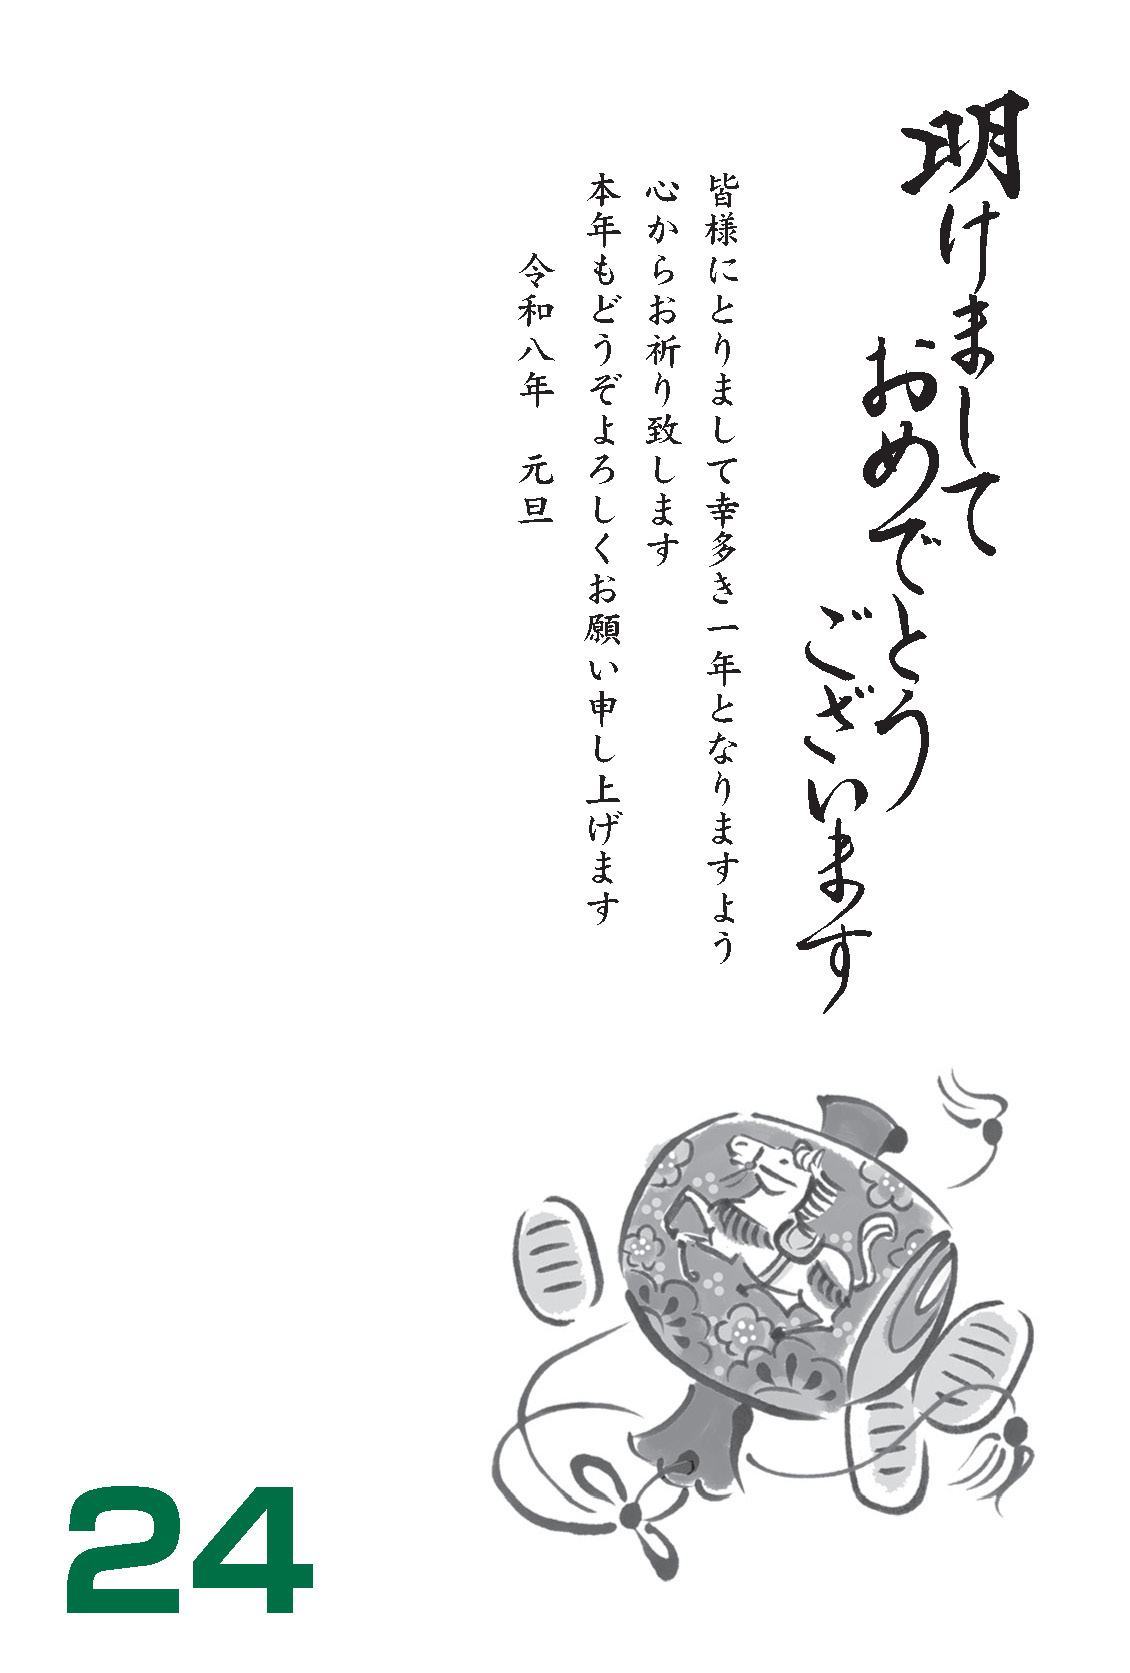 明けまして
おめでとう
ございます
皆様にとりまして幸多き一年となりますよう
心からお祈り致します
本年もどうぞよろしくお願い申し上げます
令和八年　元旦
24